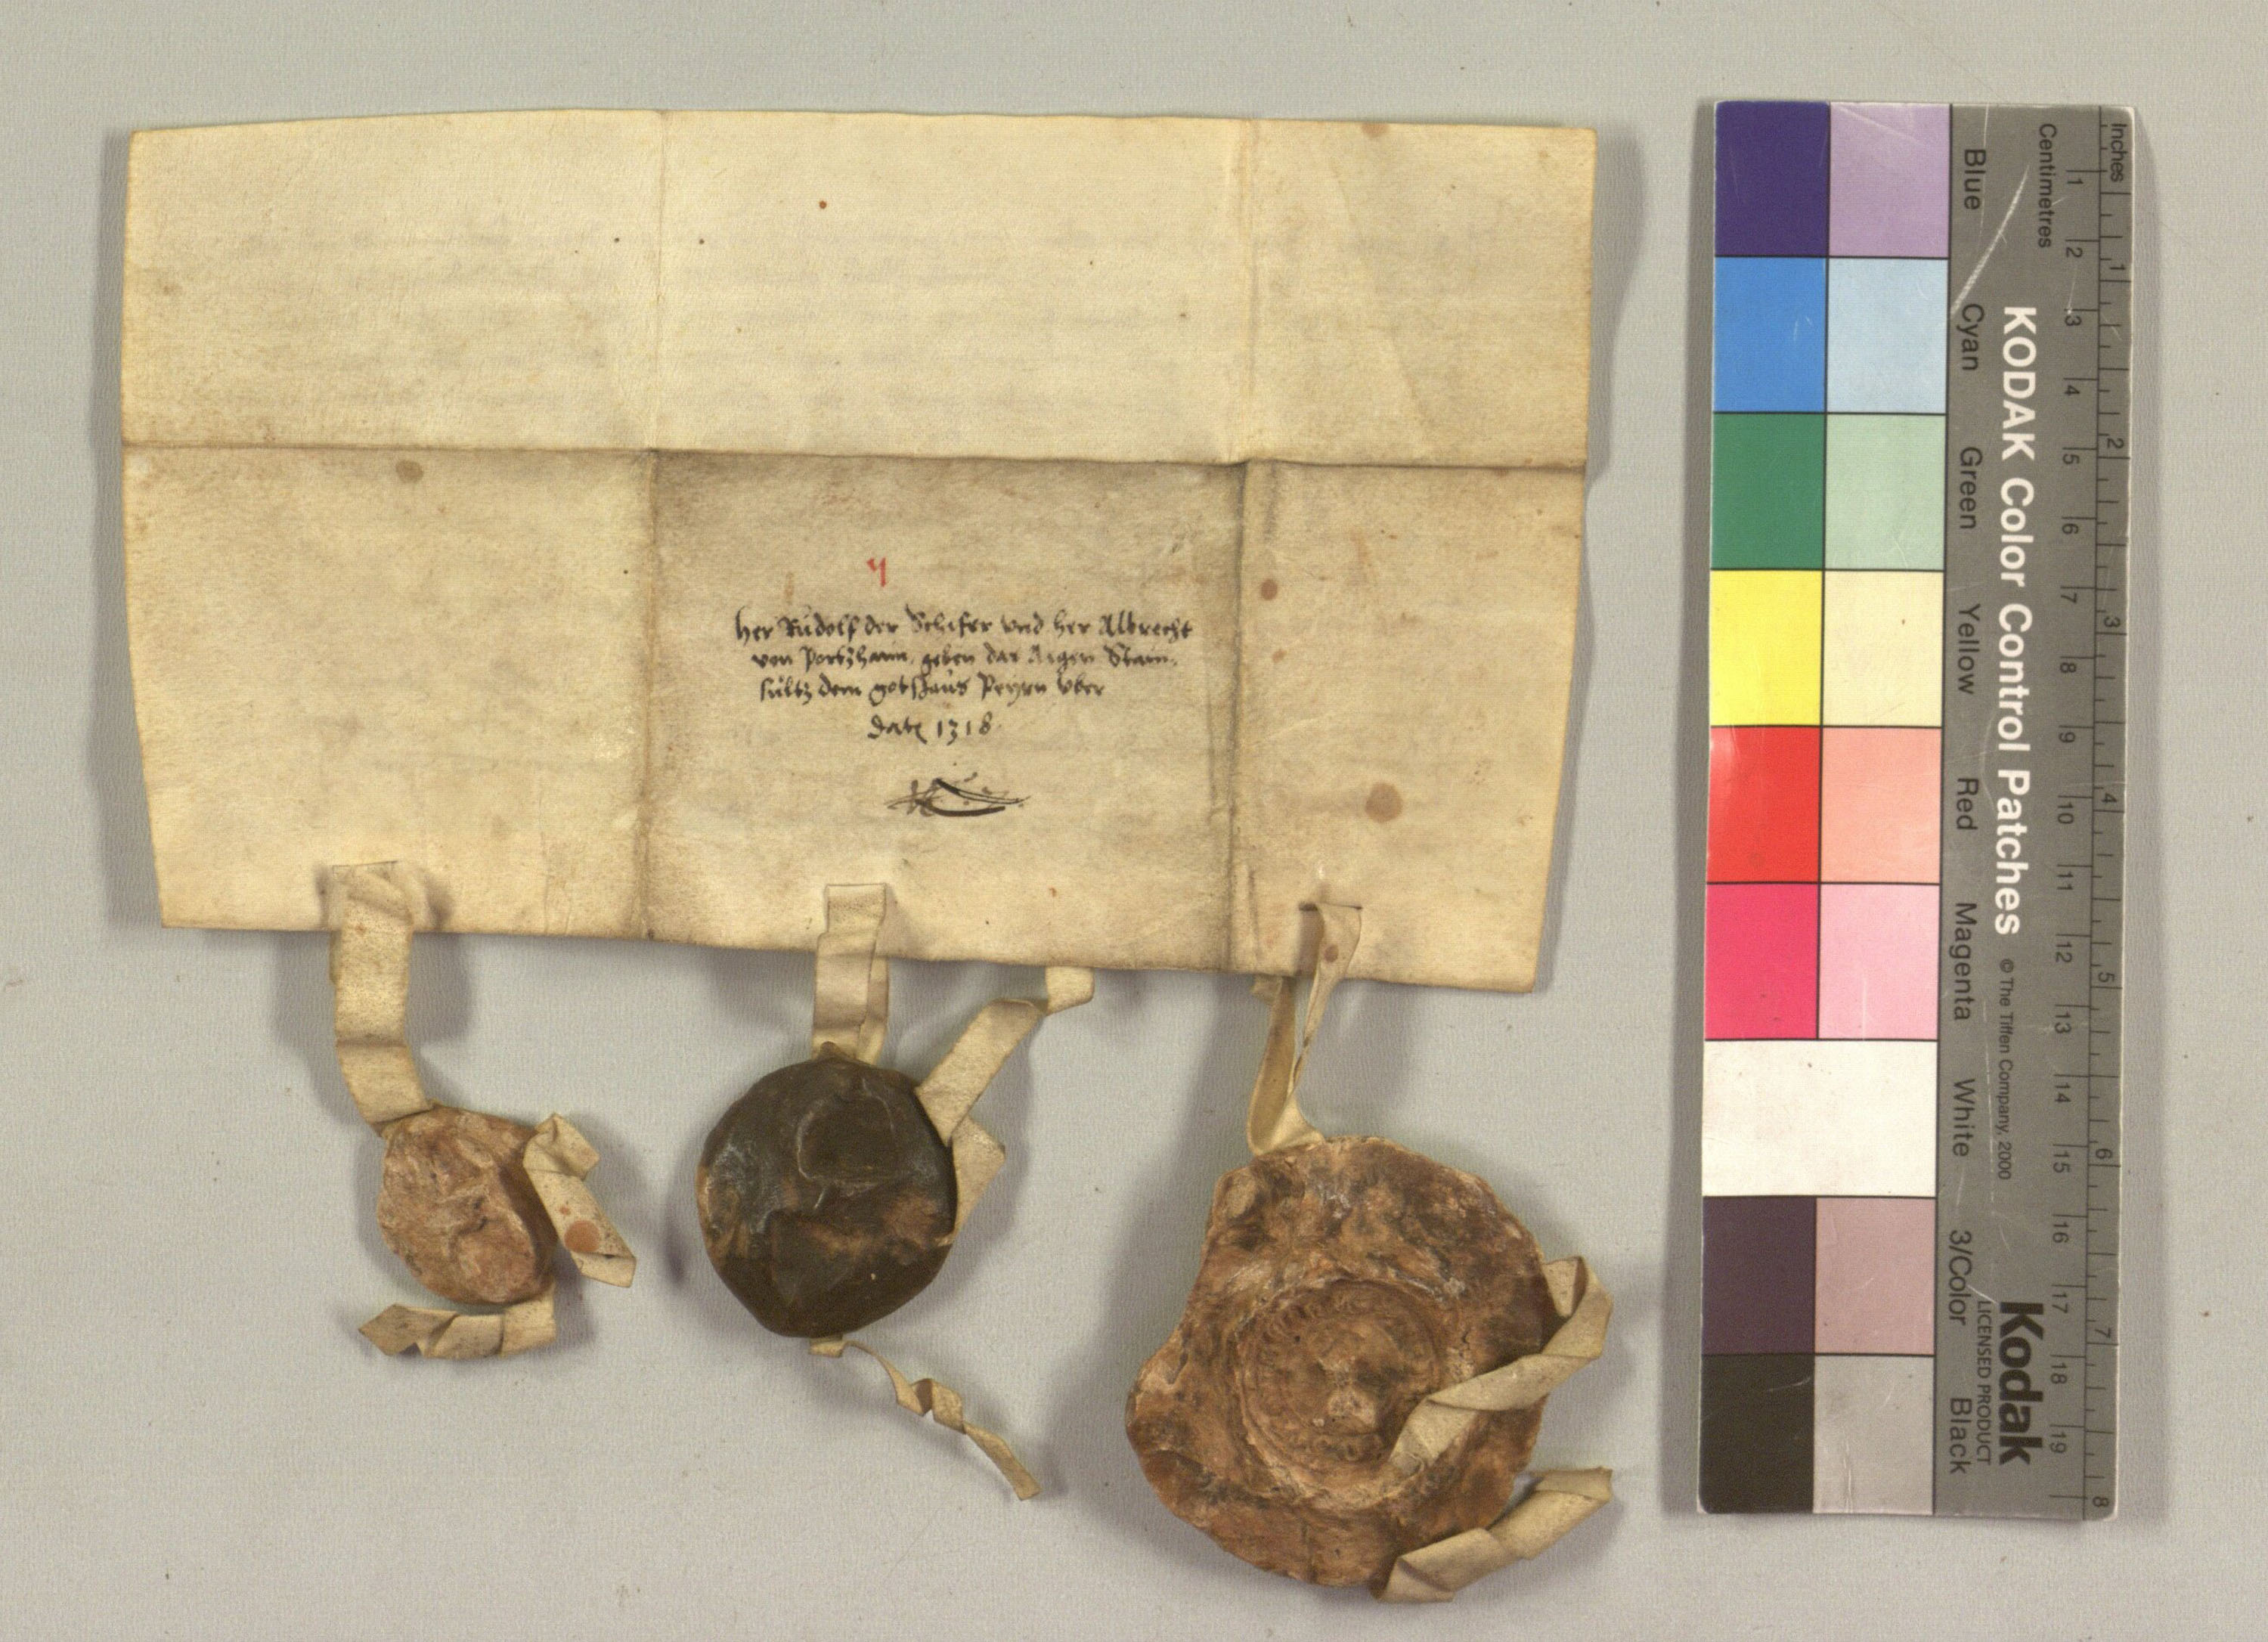 her Rudolf der Schifer vnd her Albrecht
von Portzhaim, geben das Aigen Stain,
sultz dem gotshaus Peyrn vber
Dat 1318
Inches
Centimetres
1 2 3 4 5 6 7 8 9 10 11 12 13 14 15 16 17 18 19
1 2 3 4 5 6 7 8
KODAK Color Control Patches © The Tiffen Company, 2000
Kodak
LICENSED PRODUCT
Blue Cyan Green Yellow Red Magenta White 3/Color Black